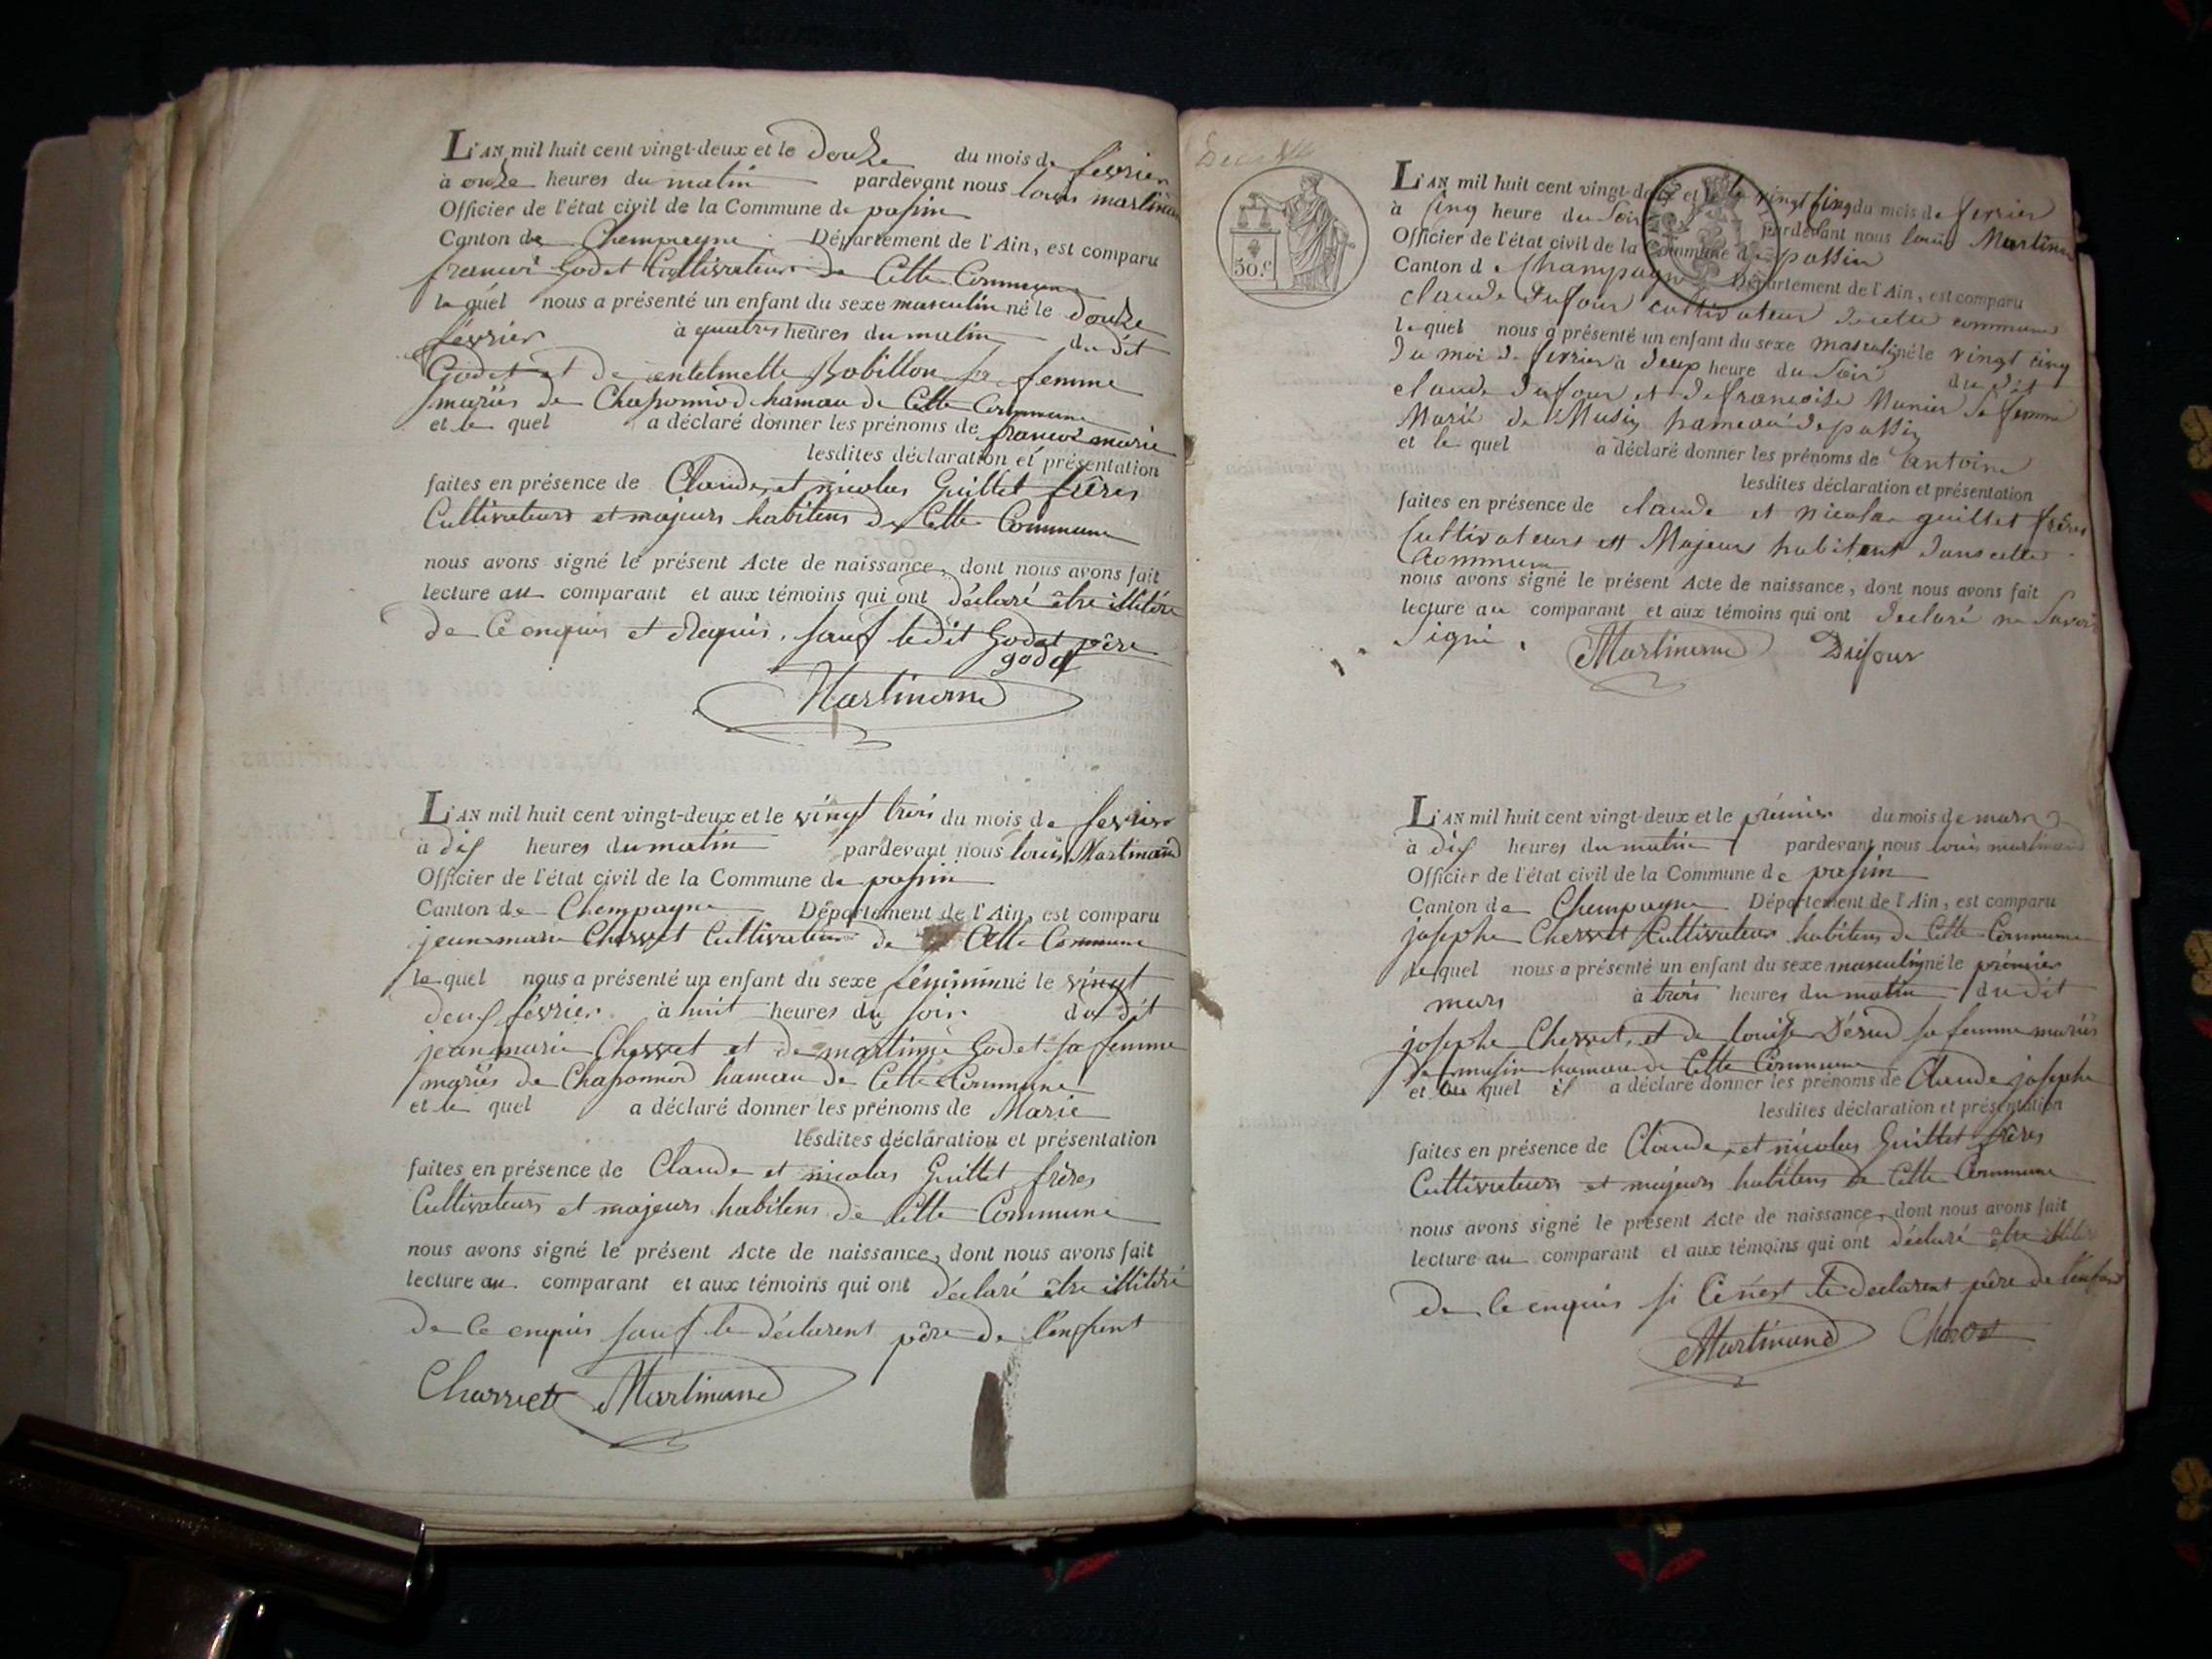 L'AN mil huit cent vingt-deux et le douze du mois de fevrier
à onze heures du matin pardevant nous louis martinand
Officier de l'état civil de la Commune de passin
Canton de Chempagne Département de l'Ain, est comparu
francois Godet Cultivateur de Cette Commune
le quel nous a présenté un enfant du sexe masculin né le douze
février à quatres heures du matin du dit
Godet et de entelmette Robillon sa femme
mariés de Chaponnod hamau de Cette Commune
et le quel a déclaré donner les prénoms de francois marie
lesdites déclaration et présentation
faites en présence de Claude et nicolas Guillet frères
Cultivateurs et majeurs habitens de Cette Commune
nous avons signé le présent Acte de naissance, dont nous avons fait
lecture au comparant et aux témoins qui ont déclaré être illitéré
de Ce enquis et Requis, sauf ledit Godet père
godet
Martinand
L'AN mil huit cent vingt-deux et le vingt trois du mois de fevrier
à dix heures du matin pardevant nous louis Martinand
Officier de l'état civil de la Commune de passin
Canton de Chempagne Département de l'Ain, est comparu
jean marie Charvet Cultivateur de Cette Commune
le quel nous a présenté un enfant du sexe féminin né le vingt
deux février à huit heures du soir du dit
jean marie Charvet et de martinne Godet sa femme
mariés de Chaponnod hamau de Cette Commune
et le quel a déclaré donner les prénoms de Marie
lesdites déclaration et présentation
faites en présence de Claude et nicolas Guillet frères
Cultivateurs et majeurs habitens de Cette Commune
nous avons signé le présent Acte de naissance, dont nous avons fait
lecture au comparant et aux témoins qui ont déclaré être illitéré
de Ce enquis sauf le déclarent père de l'enfent
Charvet Martinand
50.c
L'AN mil huit cent vingt-deux et le vingt sinq du mois de fevrier
à sinq heure du soir pardevant nous louis Martinand
Officier de l'état civil de la Commune de passin
Canton de Champagne Département de l'Ain, est comparu
claude Dufour cultivateur de cette commune
le quel nous a présenté un enfant du sexe masculin né le vingt cinq
du moi de fevrier à deux heure du soir du dit
claude dufour et de francoise Munier sa femme
Marié de Musin hameau de passin
et le quel a déclaré donner les prénoms de antoine
lesdites déclaration et présentation
faites en présence de claude et nicolas guillet frères
cultivateurs et Majeurs habitant dans cette
Commune
nous avons signé le présent Acte de naissance, dont nous avons fait
lecture au comparant et aux témoins qui ont declaré ne savoir
signé. Martinand Dufour
L'AN mil huit cent vingt-deux et le prémier du mois de mars
à dix heures du matin pardevant nous louis martinand
Officier de l'état civil de la Commune de passin
Canton de Chempagne Département de l'Ain, est comparu
josephe Chervet Cultivateur habitens de Cette Commune
le quel nous a présenté un enfant du sexe masculin né le prémier
mars à trois heures du matin du dit
josephe Chervet, et de louise sa femme mariés
de musin hamau de Cette Commune
et le quel il a déclaré donner les prénoms de Claude josephe
lesdites déclaration et présentation
faites en présence de Claude, et nicolas Guillet frères
Cultivateurs et majeurs habitens de Cette Commune
nous avons signé le présent Acte de naissance, dont nous avons fait
lecture au comparant et aux témoins qui ont déclaré être illitéré
de Ce enquis si Cé n'est le declarent père de l'enfant
Martinand Charvet